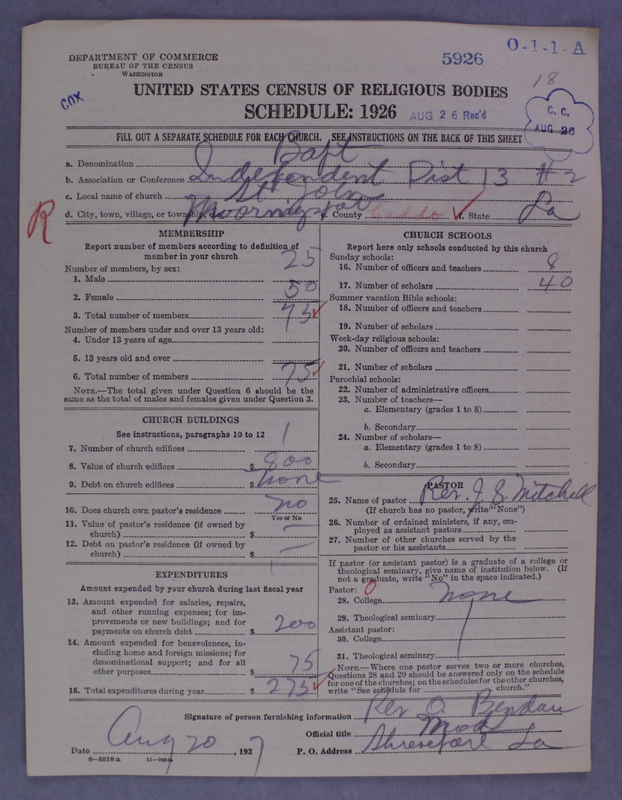 DEPARTMENT OF COMMERCE
BUREAU OF THE CENSUS
WASHINGTON
5926
O-1-1-A
18
COX
UNITED STATES CENSUS OF RELIGIOUS BODIES
SCHEDULE: 1926
AUG 26 Rec'd
C. C.
AUG 26
FILL OUT A SEPARATE SCHEDULE FOR EACH CHURCH. SEE INSTRUCTIONS ON THE BACK OF THIS SHEET
a. Denomination Bapt
b. Association or Conference Independent Dist 13 #2
c. Local name of church St John
d. City, town, village, or township e. County Caddo f. State La
R
MEMBERSHIP
Report number of members according to definition of member in your church
Number of members, by sex:
1. Male 25
2. Female 50
3. Total number of members 75
Number of members under and over 13 years old:
4. Under 13 years of age
5. 13 years old and over
6. Total number of members 75
NOTE.—The total given under Question 6 should be the same as the total of males and females given under Question 3.
CHURCH BUILDINGS
See instructions, paragraphs 10 to 12
7. Number of church edifices 1
8. Value of church edifices $ 800
9. Debt on church edifices $ none
10. Does church own pastor's residence no
Yes or No
11. Value of pastor's residence (if owned by church) $ —
12. Debt on pastor's residence (if owned by church) $ —
EXPENDITURES
Amount expended by your church during last fiscal year
13. Amount expended for salaries, repairs, and other running expenses; for improvements or new buildings; and for payments on church debt $ 200
14. Amount expended for benevolences, including home and foreign missions; for denominational support; and for all other purposes $ 75
15. Total expenditures during year $ 275
CHURCH SCHOOLS
Report here only schools conducted by this church
Sunday schools:
16. Number of officers and teachers 8
17. Number of scholars 40
Summer vacation Bible schools:
18. Number of officers and teachers
19. Number of scholars
Week-day religious schools:
20. Number of officers and teachers
21. Number of scholars
Parochial schools:
22. Number of administrative officers
23. Number of teachers—
a. Elementary (grades 1 to 8)
b. Secondary
24. Number of scholars—
a. Elementary (grades 1 to 8)
b. Secondary
PASTOR
25. Name of pastor Rev. J. S. Mitchell
(If church has no pastor, write "None")
26. Number of ordained ministers, if any, employed as assistant pastors
27. Number of other churches served by the pastor or his assistants
If pastor (or assistant pastor) is a graduate of a college or theological seminary, give name of institution below. (If not a graduate, write "No" in the space indicated.)
Pastor: 0
28. College none
29. Theological seminary
Assistant pastor:
30. College
31. Theological seminary
NOTE.—Where one pastor serves two or more churches, Questions 28 and 29 should be answered only on the schedule for one of the churches; on the schedules for the other churches, write "See schedule for church."
Signature of person furnishing information Rev O.
Official title Mod
Date Aug 20, 1927 P. O. Address Shreveport La
8—5518a 11—